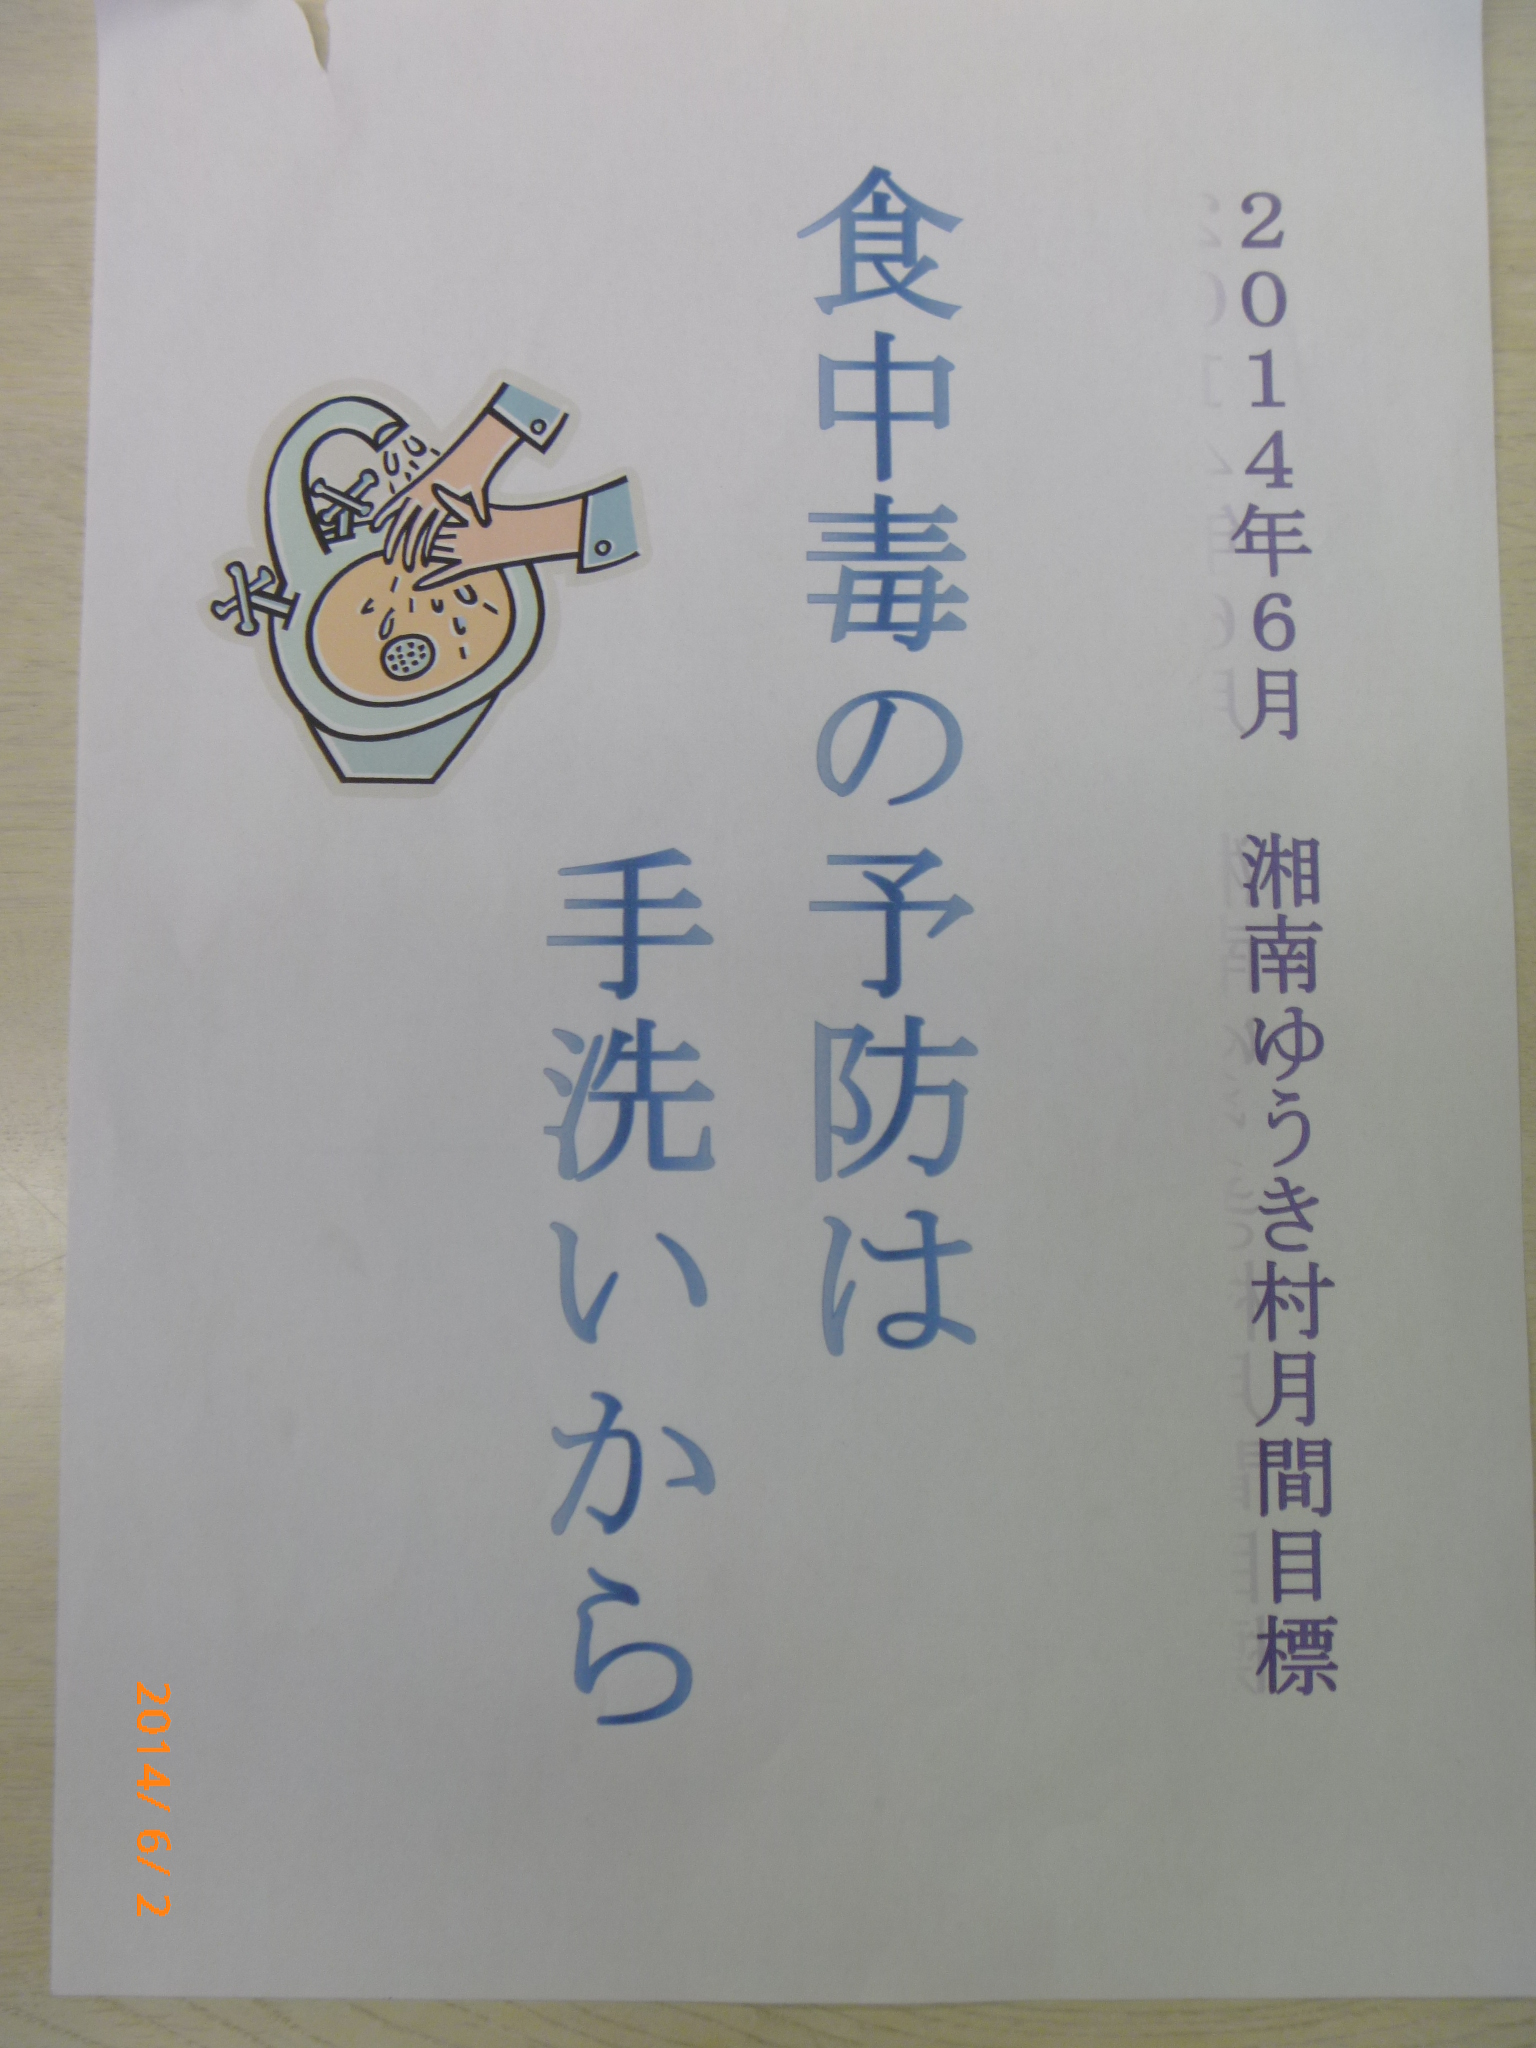 ２０１４年６月　湘南ゆうき村月間目標
食中毒の予防は
手洗いから
2014/ 6/ 2